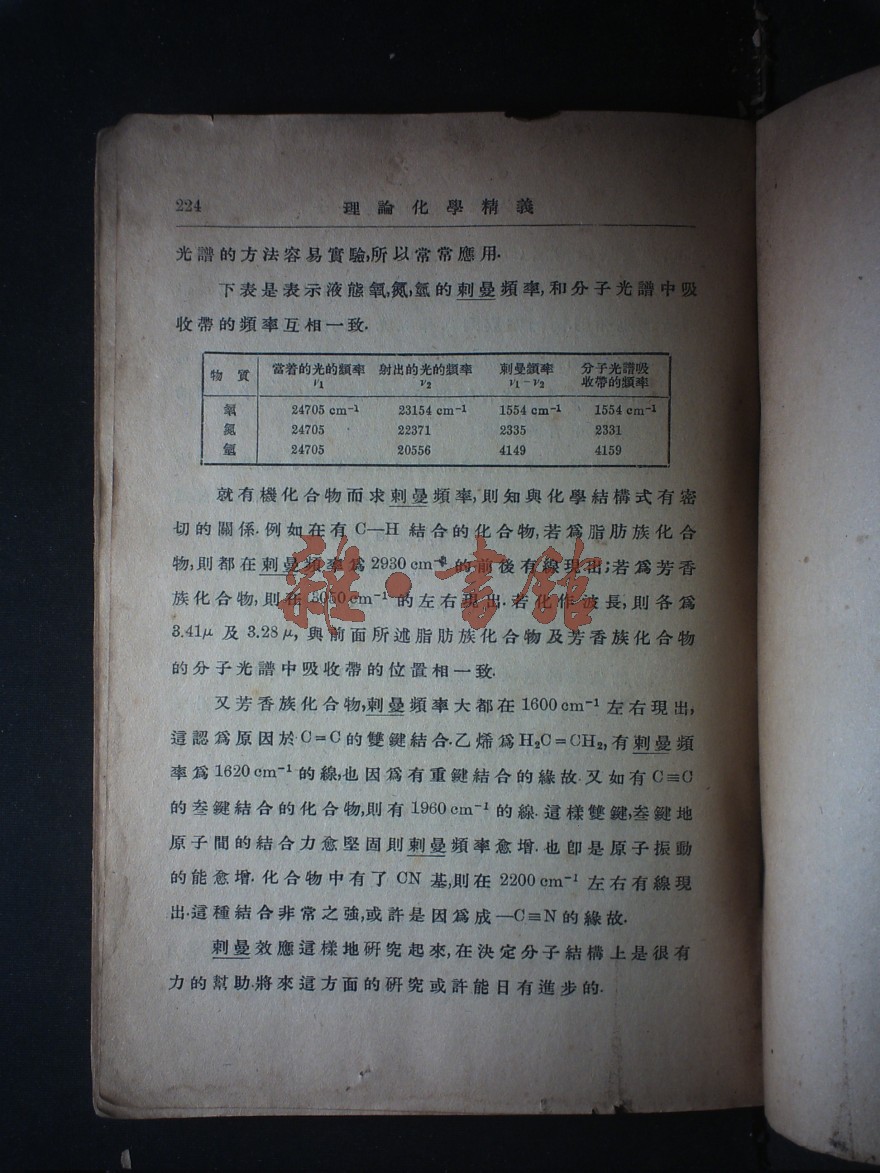 224 理論化學精義
光譜的方法容易實驗,所以常常應用.
下表是表示液態氧,氮,氫的刺曼頻率,和分子光譜中吸
收帶的頻率互相一致.
物質 當着的光的頻率 ν₁ 射出的光的頻率 ν₂ 刺曼頻率 ν₁−ν₂ 分子光譜吸收帶的頻率
氧 24705 cm⁻¹ 23154 cm⁻¹ 1554 cm⁻¹ 1554 cm⁻¹
氮 24705 22371 2335 2331
氫 24705 20556 4149 4159
就有機化合物而求刺曼頻率,則知與化學結構式有密
切的關係.例如在有 C—H 結合的化合物,若爲脂肪族化合
物,則都在刺曼頻率爲 2930 cm⁻¹ 的前後有線現出;若爲芳香
族化合物,則在 3050 cm⁻¹ 的左右現出.若化作波長,則各爲
3.41μ 及 3.28μ, 與前面所述脂肪族化合物及芳香族化合物
的分子光譜中吸收帶的位置相一致.
又芳香族化合物,刺曼頻率大都在 1600 cm⁻¹ 左右現出,
這認爲原因於 C=C 的雙鍵結合.乙烯爲 H₂C=CH₂,有刺曼頻
率爲 1620 cm⁻¹ 的線,也因爲有重鍵結合的緣故.又如有 C≡C
的叁鍵結合的化合物,則有 1960 cm⁻¹ 的線.這樣雙鍵,叁鍵地
原子間的結合力愈堅固則刺曼頻率愈增.也卽是原子振動
的能愈增.化合物中有了 CN 基,則在 2200 cm⁻¹ 左右有線現
出.這種結合非常之強,或許是因爲成—C≡N 的緣故.
刺曼效應這樣地研究起來,在決定分子結構上是很有
力的幫助.將來這方面的研究或許能日有進步的.
雜·書館